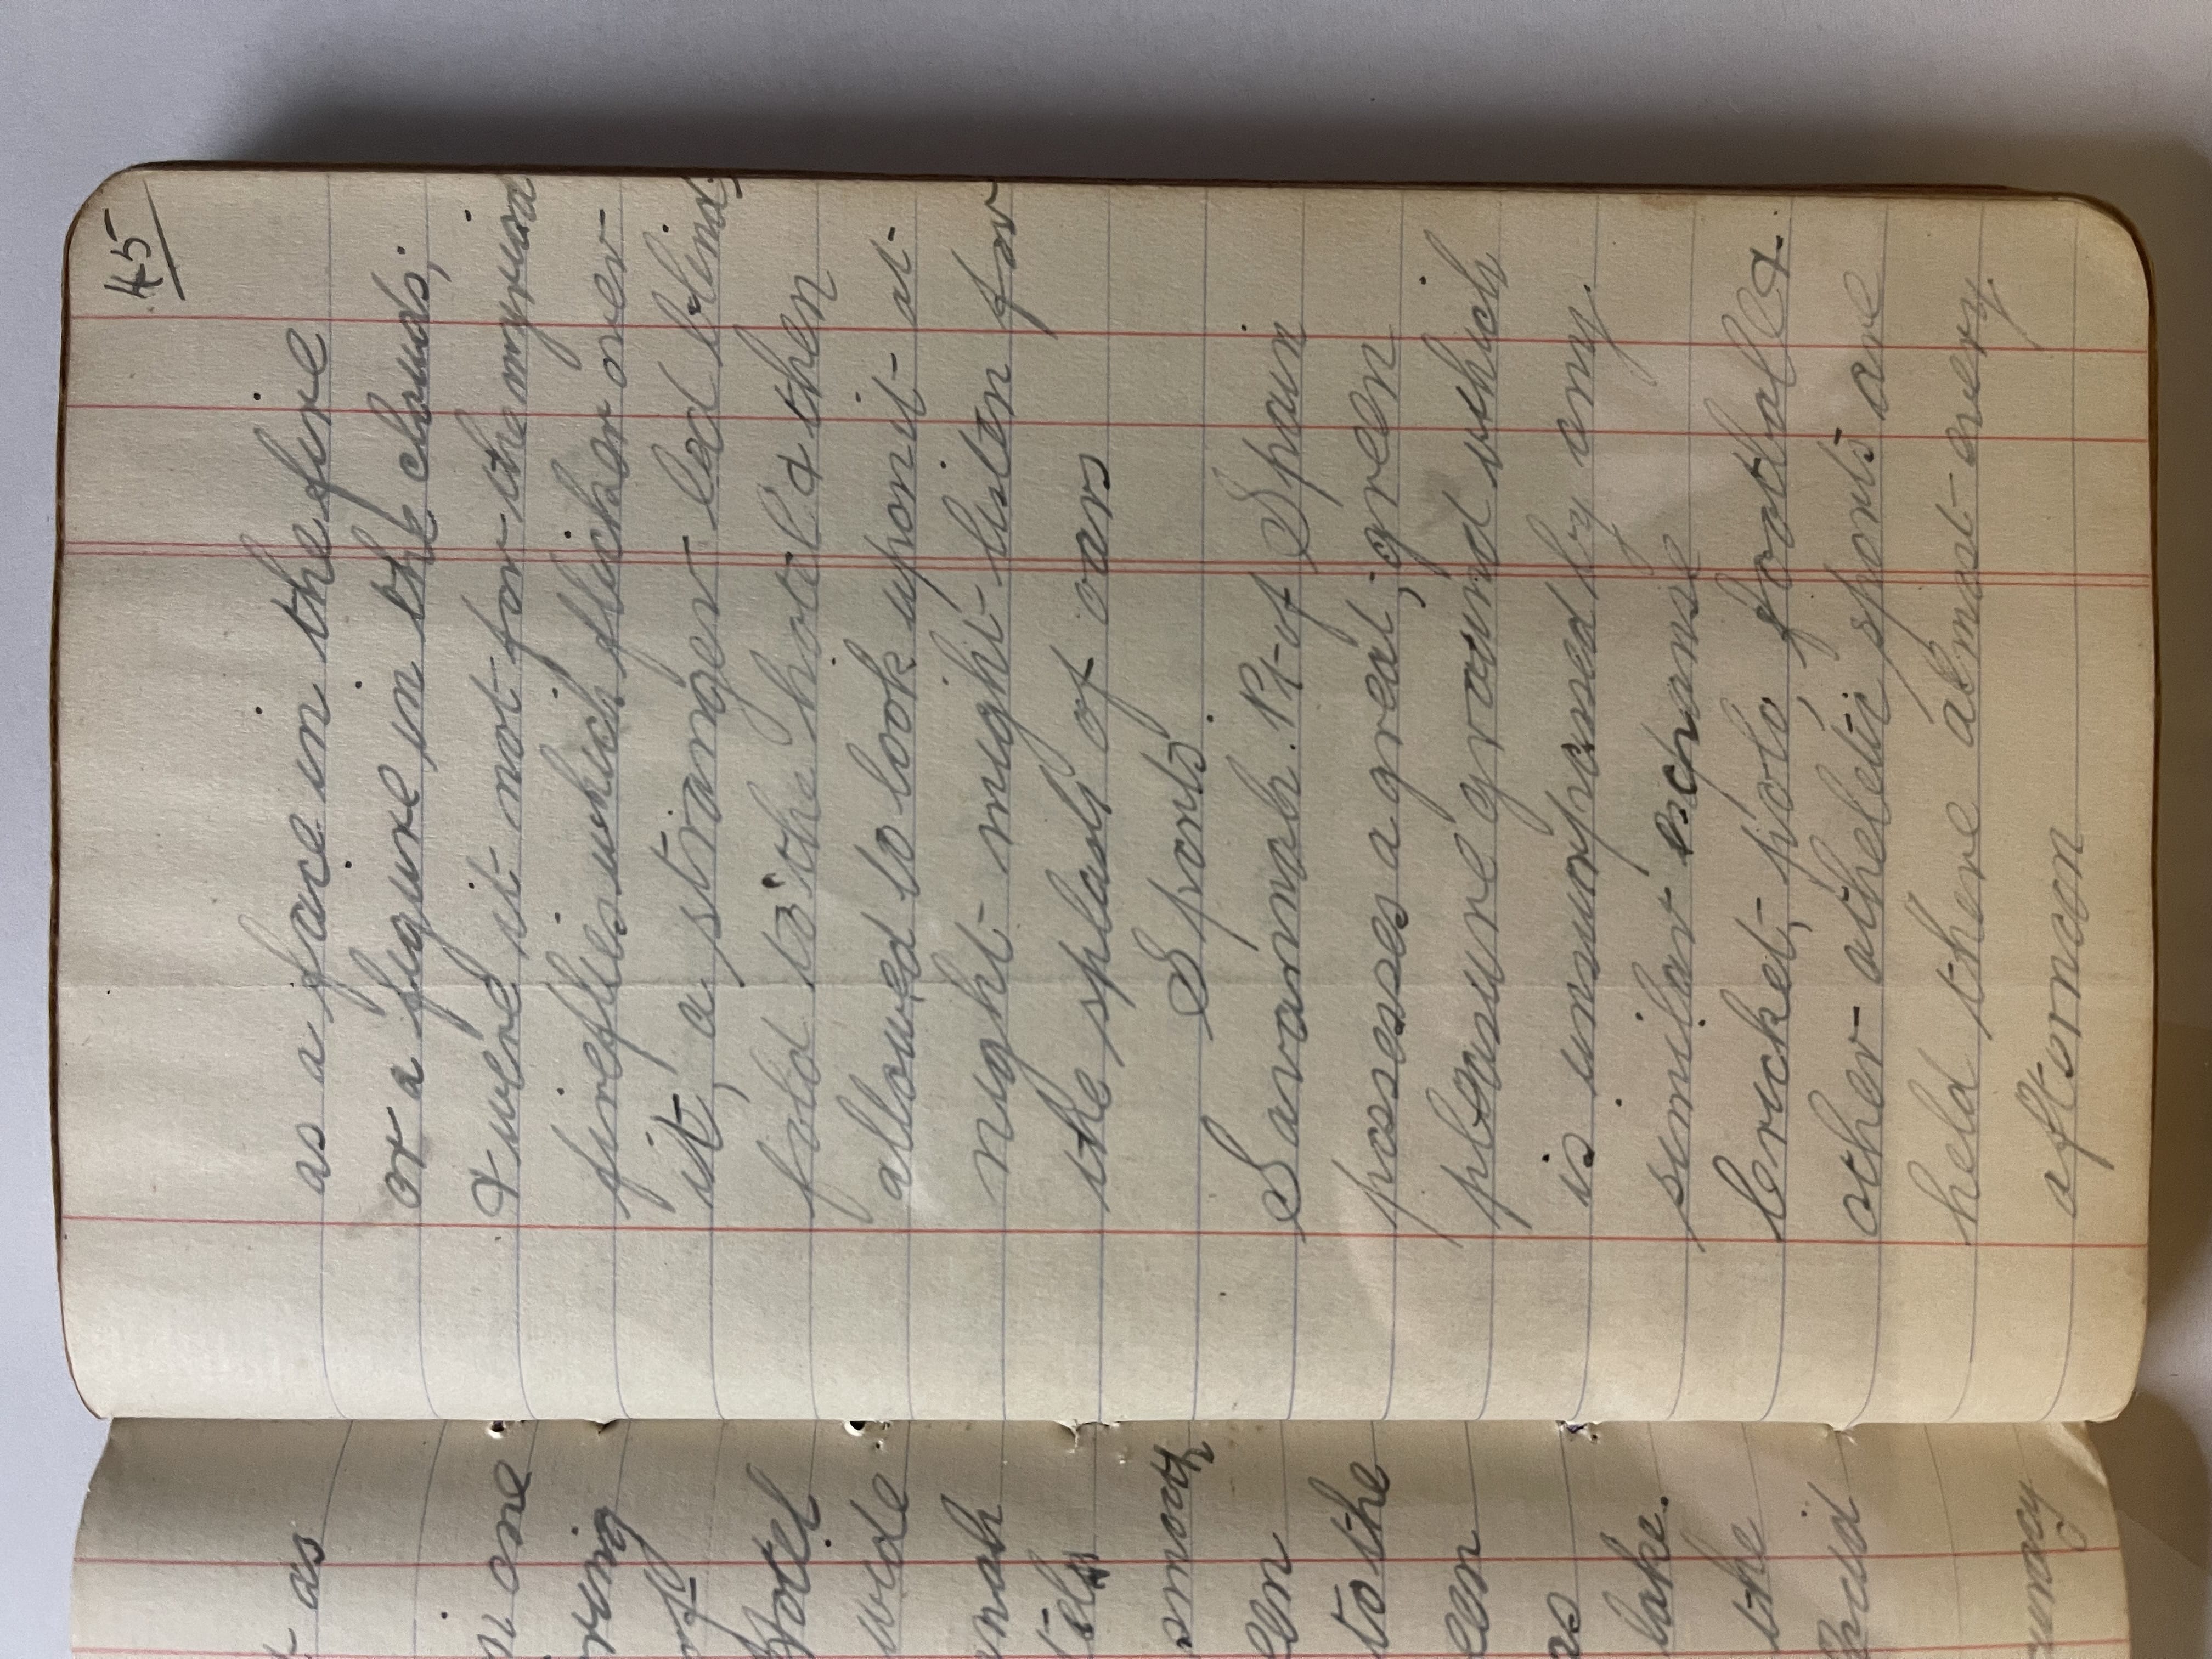 45
as a face in the fire
or a figure in the clouds,
& were it not for the myriad
fireflies which flicker over
it, a stranger led blind,
fold to the hotel & then
allowed to look upon it at
night might listen for
the splash of oars
Sports.
Savannah. Pt of Spain
posesses a great, green
pleasure ground which
is unsurpassed by any
similar
Cricket, polo, football &
other athletic sports are
held there almost every
afternoon
as
one
ring
of
Hotel
wide
smooth
to the
as
lake.
the